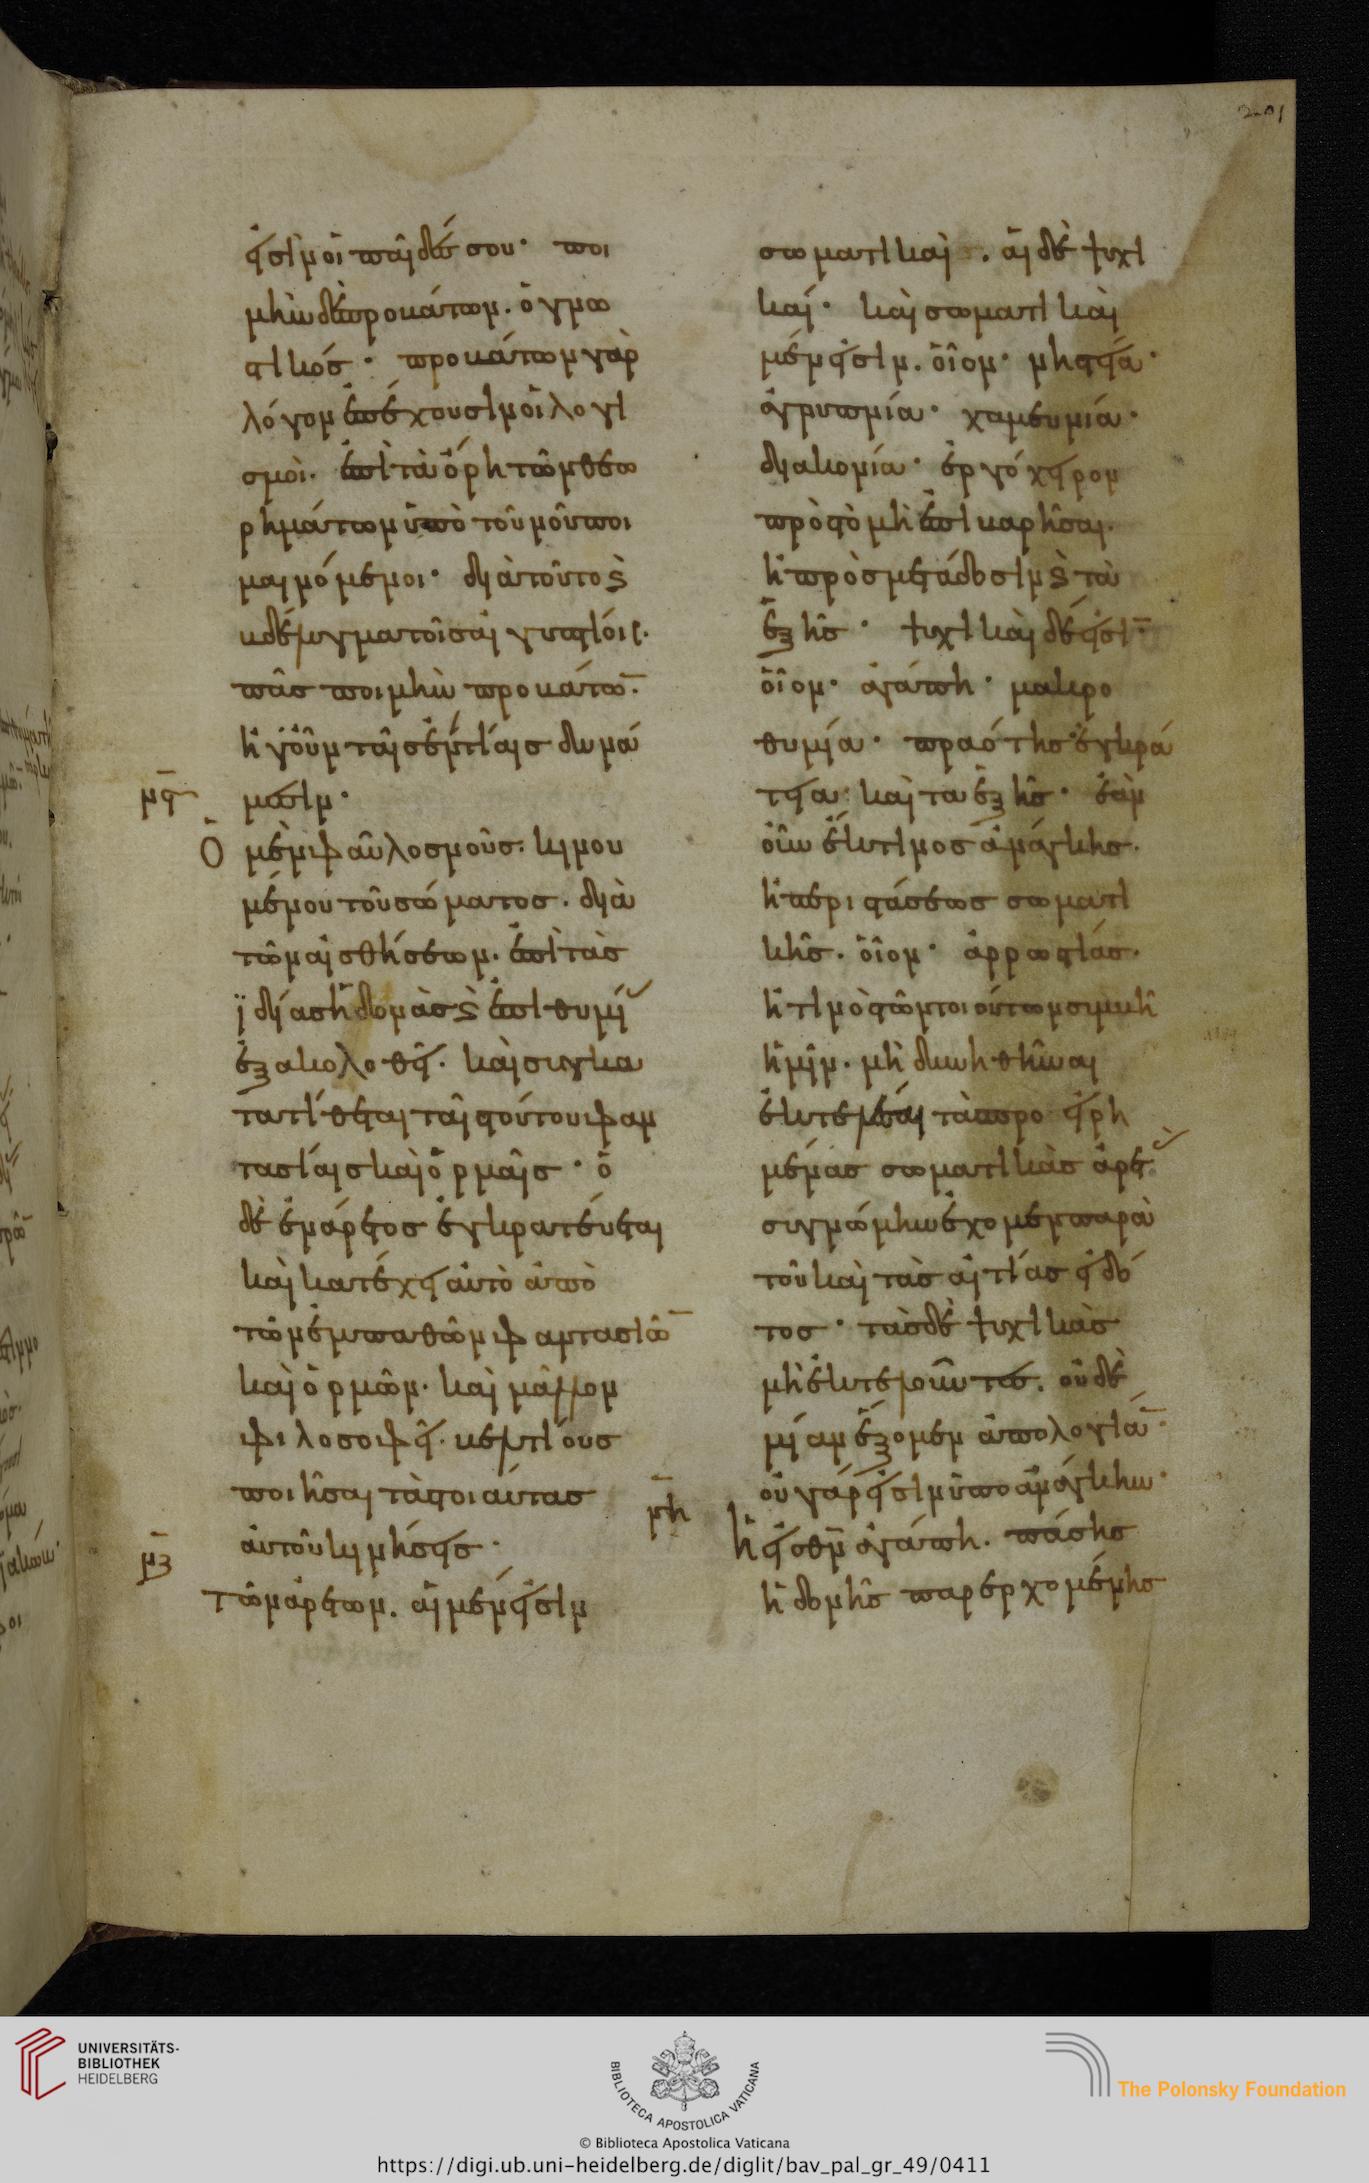 201
εἰσὶν οἱ παῖδές σου· ποι
μὴν δὲ προβάτων. ὁ γνω
στικός· προβάτων γὰρ
λόγον ἐπέχουσιν οἱ λογι
σμοὶ. ἐπὶ τὰ ὄρη τῶν θεω
ρημάτων ὑπὸ τοῦ νοῦ ποι
μαινόμενοι· διὰ τοῦτο ϛ̀
βδέλυγμα τοῖς αἰγυπτίοις.
πᾶς ποιμὴν προβάτω̅.
ἤγουν ταῖς ἐναντίαις δυνά
μ̅ϛ̅ μεσιν·
Ὁ μὲν φαῦλος νοῦς. κινου
μένου τοῦ σώματος. διὰ
τῶν αἰσθήσεων. ἐπὶ τὰς
ἰδίας ἡδονὰς ϛ̀ ἐπιθυμί
ἐξακολοθεῖ. καὶ συγκα
τατίθεται ταῖς τούτου φαν
τασίαις καὶ ὁρμαῖς· ὁ
δὲ ἐνάρετος ἐγκρατεύεται
καὶ κατέχει αὐτὸ ἀπὸ
τῶν ἐμπαθῶν φαντασιῶ̅
καὶ ὁρμῶν. καὶ μᾶλλον
φιλοσοφεῖ. βελτίους
ποιῆσαι τὰς τοιαύτας
αὐτοῦ κινήσεις·
μ̅ζ̅
Τῶν ἀρετῶν. αἱ μέν εἰσιν
σωματικαὶ. αἱ δὲ ψυχι
καί· καὶ σωματικαὶ
μέν εἰσιν. οἷον· νηστεία·
ἀγρυπνία· χαμευνία·
διακονία· ἐργόχειρον
πρὸς τὸ μὴ ἐπιβαρῆσαι.
ἢ πρὸς μετάδοσιν ϛ̀ τὰ
ἑξῆς· ψυχικαὶ δέ εἰσι̅
οἷον· ἀγάπη· μακρο
θυμία· πραότης· ἐγκρά
τεια· καὶ τα ἑξῆς· ἐὰν
οὖν ἔκ τινος ἀνάγκης.
ἢ περιστάσεως σωματι
κῆς. οἷον· ἀρρωστίας.
ἤ τινὸς τῶν τοιούτων συμβῆ
ἡμῖν. μὴ δυνηθῆναι
ἐκτελέσαι τὰ προειρη
μένας σωματικὰς ἀρετ
συγνώμην ἔχομεν παρὰ
τοῦ καὶ τὰς αἰτίας εἰδό
τος· τὰς δὲ ψυχικὰς
μὴ ἐκτελοῦντες. οὐδε
μίαν ἕξομεν ἀπολογία̅·
οὐ γάρ εἰσιν ὑπο ἀνάγκην·
μ̅η̅ Ἡ εἰς θν̅ ἀγάπη. πάσης
ἡδονῆς παρερχομένης
UNIVERSITÄTS-
BIBLIOTHEK
HEIDELBERG
BIBLIOTECA APOSTOLICA VATICANA
© Biblioteca Apostolica Vaticana
The Polonsky Foundation
https://digi.ub.uni-heidelberg.de/diglit/bav_pal_gr_49/0411